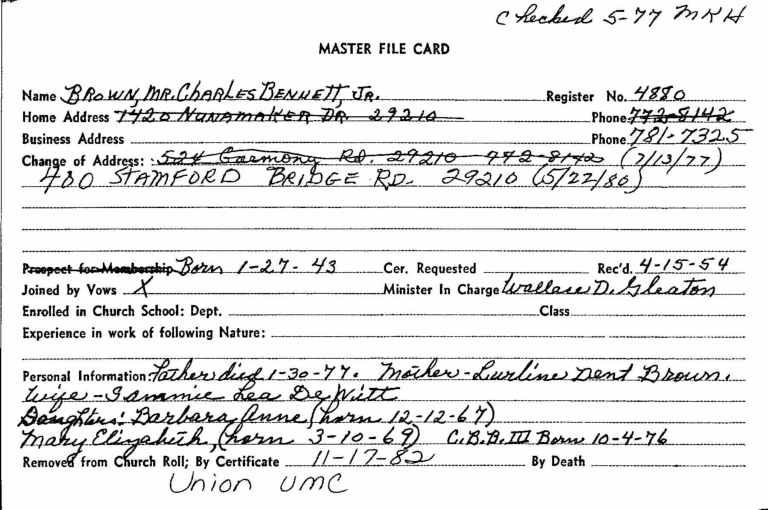 Checked 5-77 MKH
MASTER FILE CARD
Name Brown, Mr. Charles Bennett, Jr. Register No. 4880
Home Address 7420 Nunamaker Dr. 29210 Phone 772-8142
Business Address Phone 781-7325
Change of Address: 524 Garmony Rd. 29210 772-8142 (7/13/77)
400 STAMFORD BRIDGE RD. 29210 (5/22/80)
Prospect for Membership Born 1-27-43 Cer. Requested Rec'd. 4-15-54
Joined by Vows X Minister In Charge Wallace D. Gleaton
Enrolled in Church School: Dept. Class
Experience in work of following Nature:
Personal Information: Father died 1-30-77. Mother - Lurline Dent Brown.
Wife - Tammie Lea DeWitt
Daughters: Barbara Anne (born 12-12-67)
Mary Elizabeth, (born 3-10-69) C.B.B. III Born 10-4-76
Removed from Church Roll; By Certificate 11-17-82 By Death
Union UMC